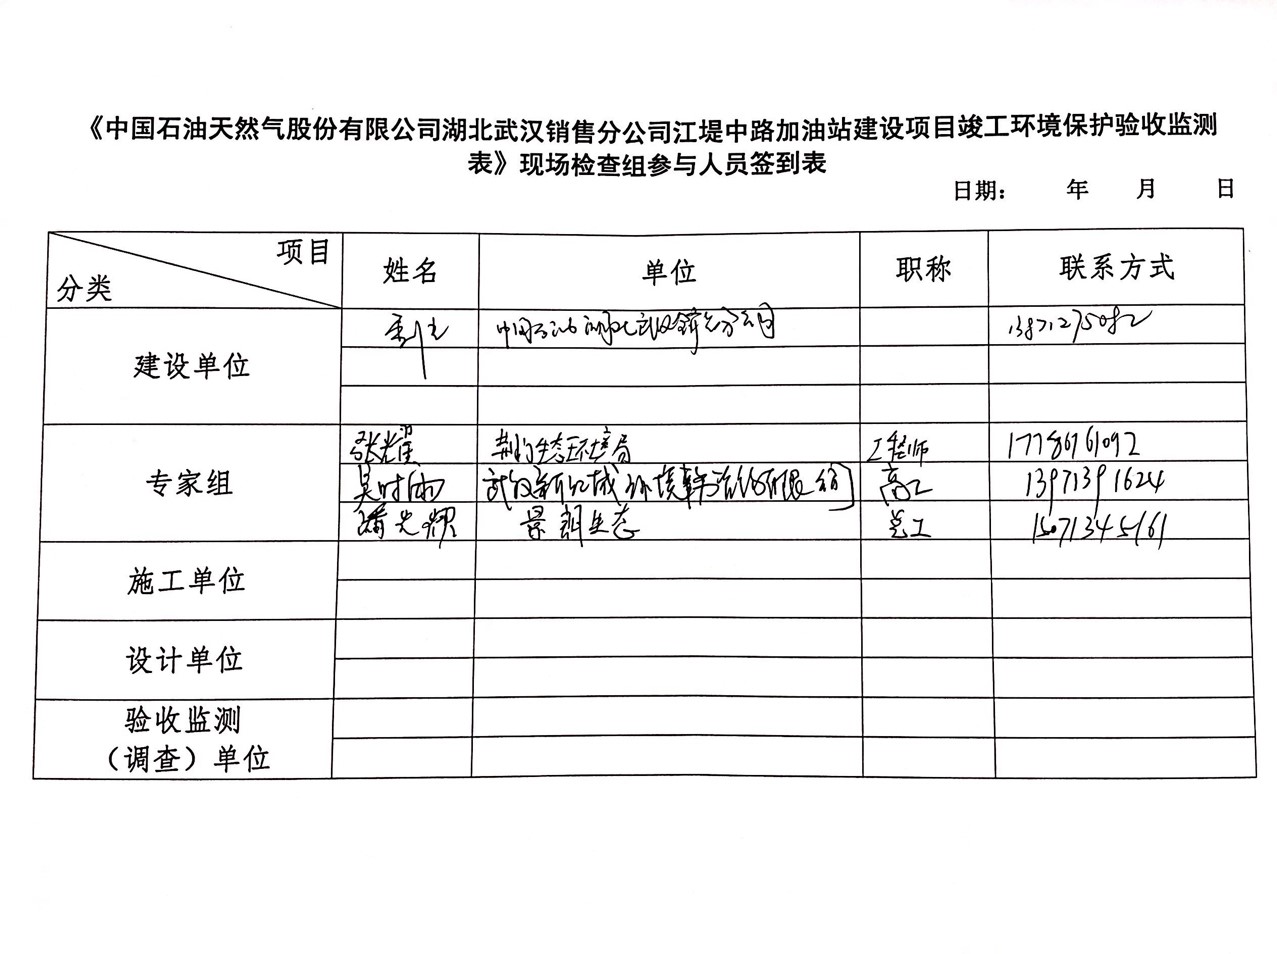 《中国石油天然气股份有限公司湖北武汉销售分公司江堤中路加油站建设项目竣工环境保护验收监测
表》现场检查组参与人员签到表
日期： 年 月 日
项目
分类
姓名 单位 职称 联系方式
中国石油湖北武汉销售分公司 13871275082
建设单位
张耀 生态环境局 工程师 17786761092
专家组 吴时雨 武汉新区域环境 有限公司 高工 13971391624
潘光耀 景朗生态 总工 15071345161
施工单位
设计单位
验收监测
（调查）单位